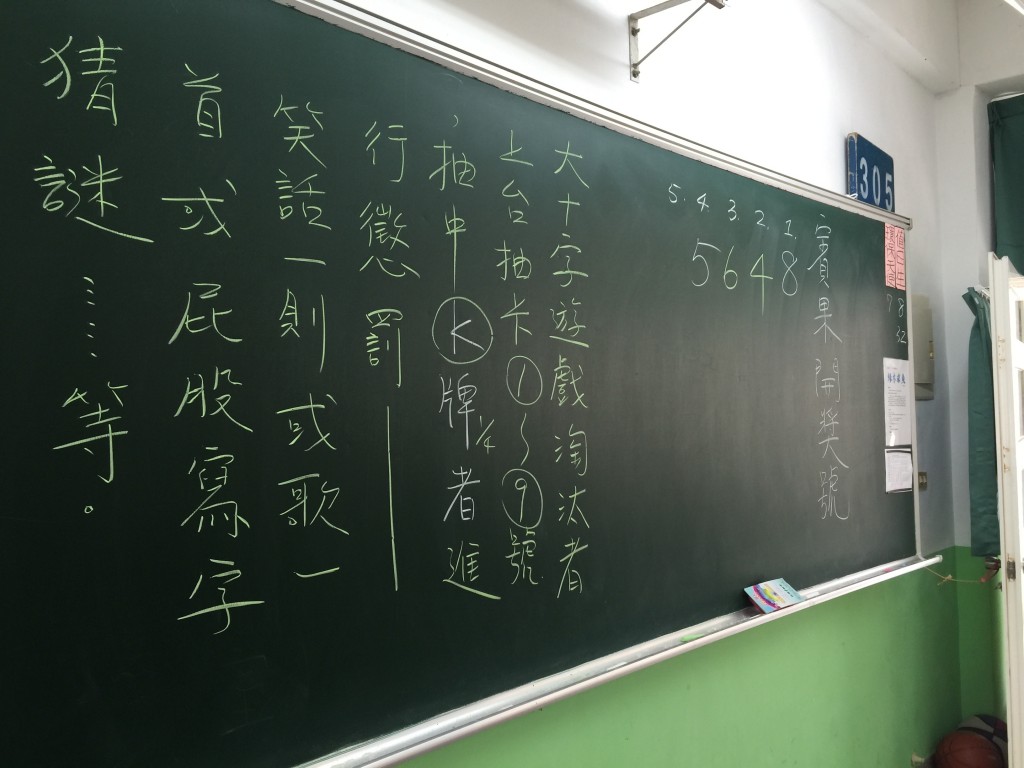 305
值日生
8
7
紅
賓果開獎號
1. 8
2. 4
3. 6
4. 5
5.
大十字遊戲淘汰者
上台抽卡①~⑨號
，抽中Ⓚ牌1/4者進
行懲罰——
笑話一則或歌一
首或屁股寫字
猜謎……等。